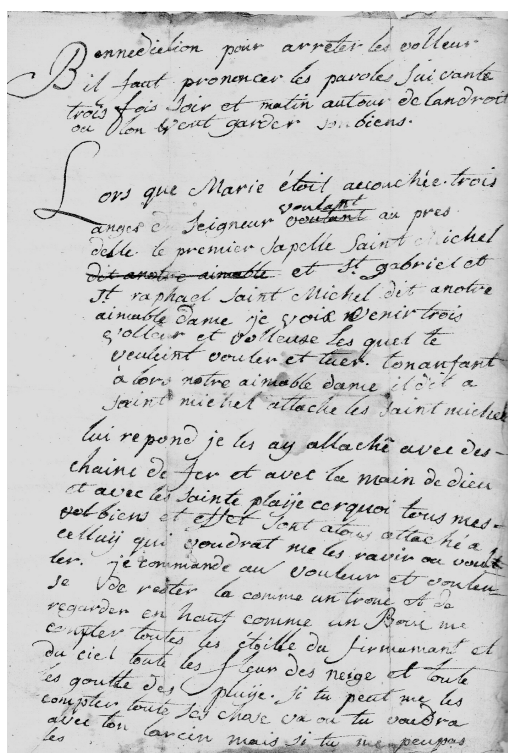 Bennediction pour arrêter les volleur
il faut prononcer les paroles suivante
trois fois soir et matin autour de landroit
ou lon veut garder son biens.
Lors que Marie étoit accouchée trois
anges d Seigneur voulant voulant au pres
delle le premier sapelle saint Michel
dit anotre aimable et st gabriel et
st raphael saint Michel dit anotre
aimable dame je vois venir trois
volleur et volleuse les quel te
veuleint vouler et tuer. ton anfant
à lors notre aimable dame il dit a
saint michel attache les saint michel
lui repond je les ay attaché avec des-
chaine de fer et avec la main de dieu
et avec les sainte plaije cerquoi tous mes-
biens et effet sont atous attaché a
celluij qui voudrat me les ravir ou voul
ler. je commande au vouleur et vouleu
se de rester la comme un tronc et de
regarder en haut comme un Bouc me
compter toutes les étoille du firmamant et
du ciel toute les fleur des neige et toute
les goutte des pluije. si tu peut me les
compter toute ses chose va ou tu voudra
avec ton larcin mais si tu me peupas
les